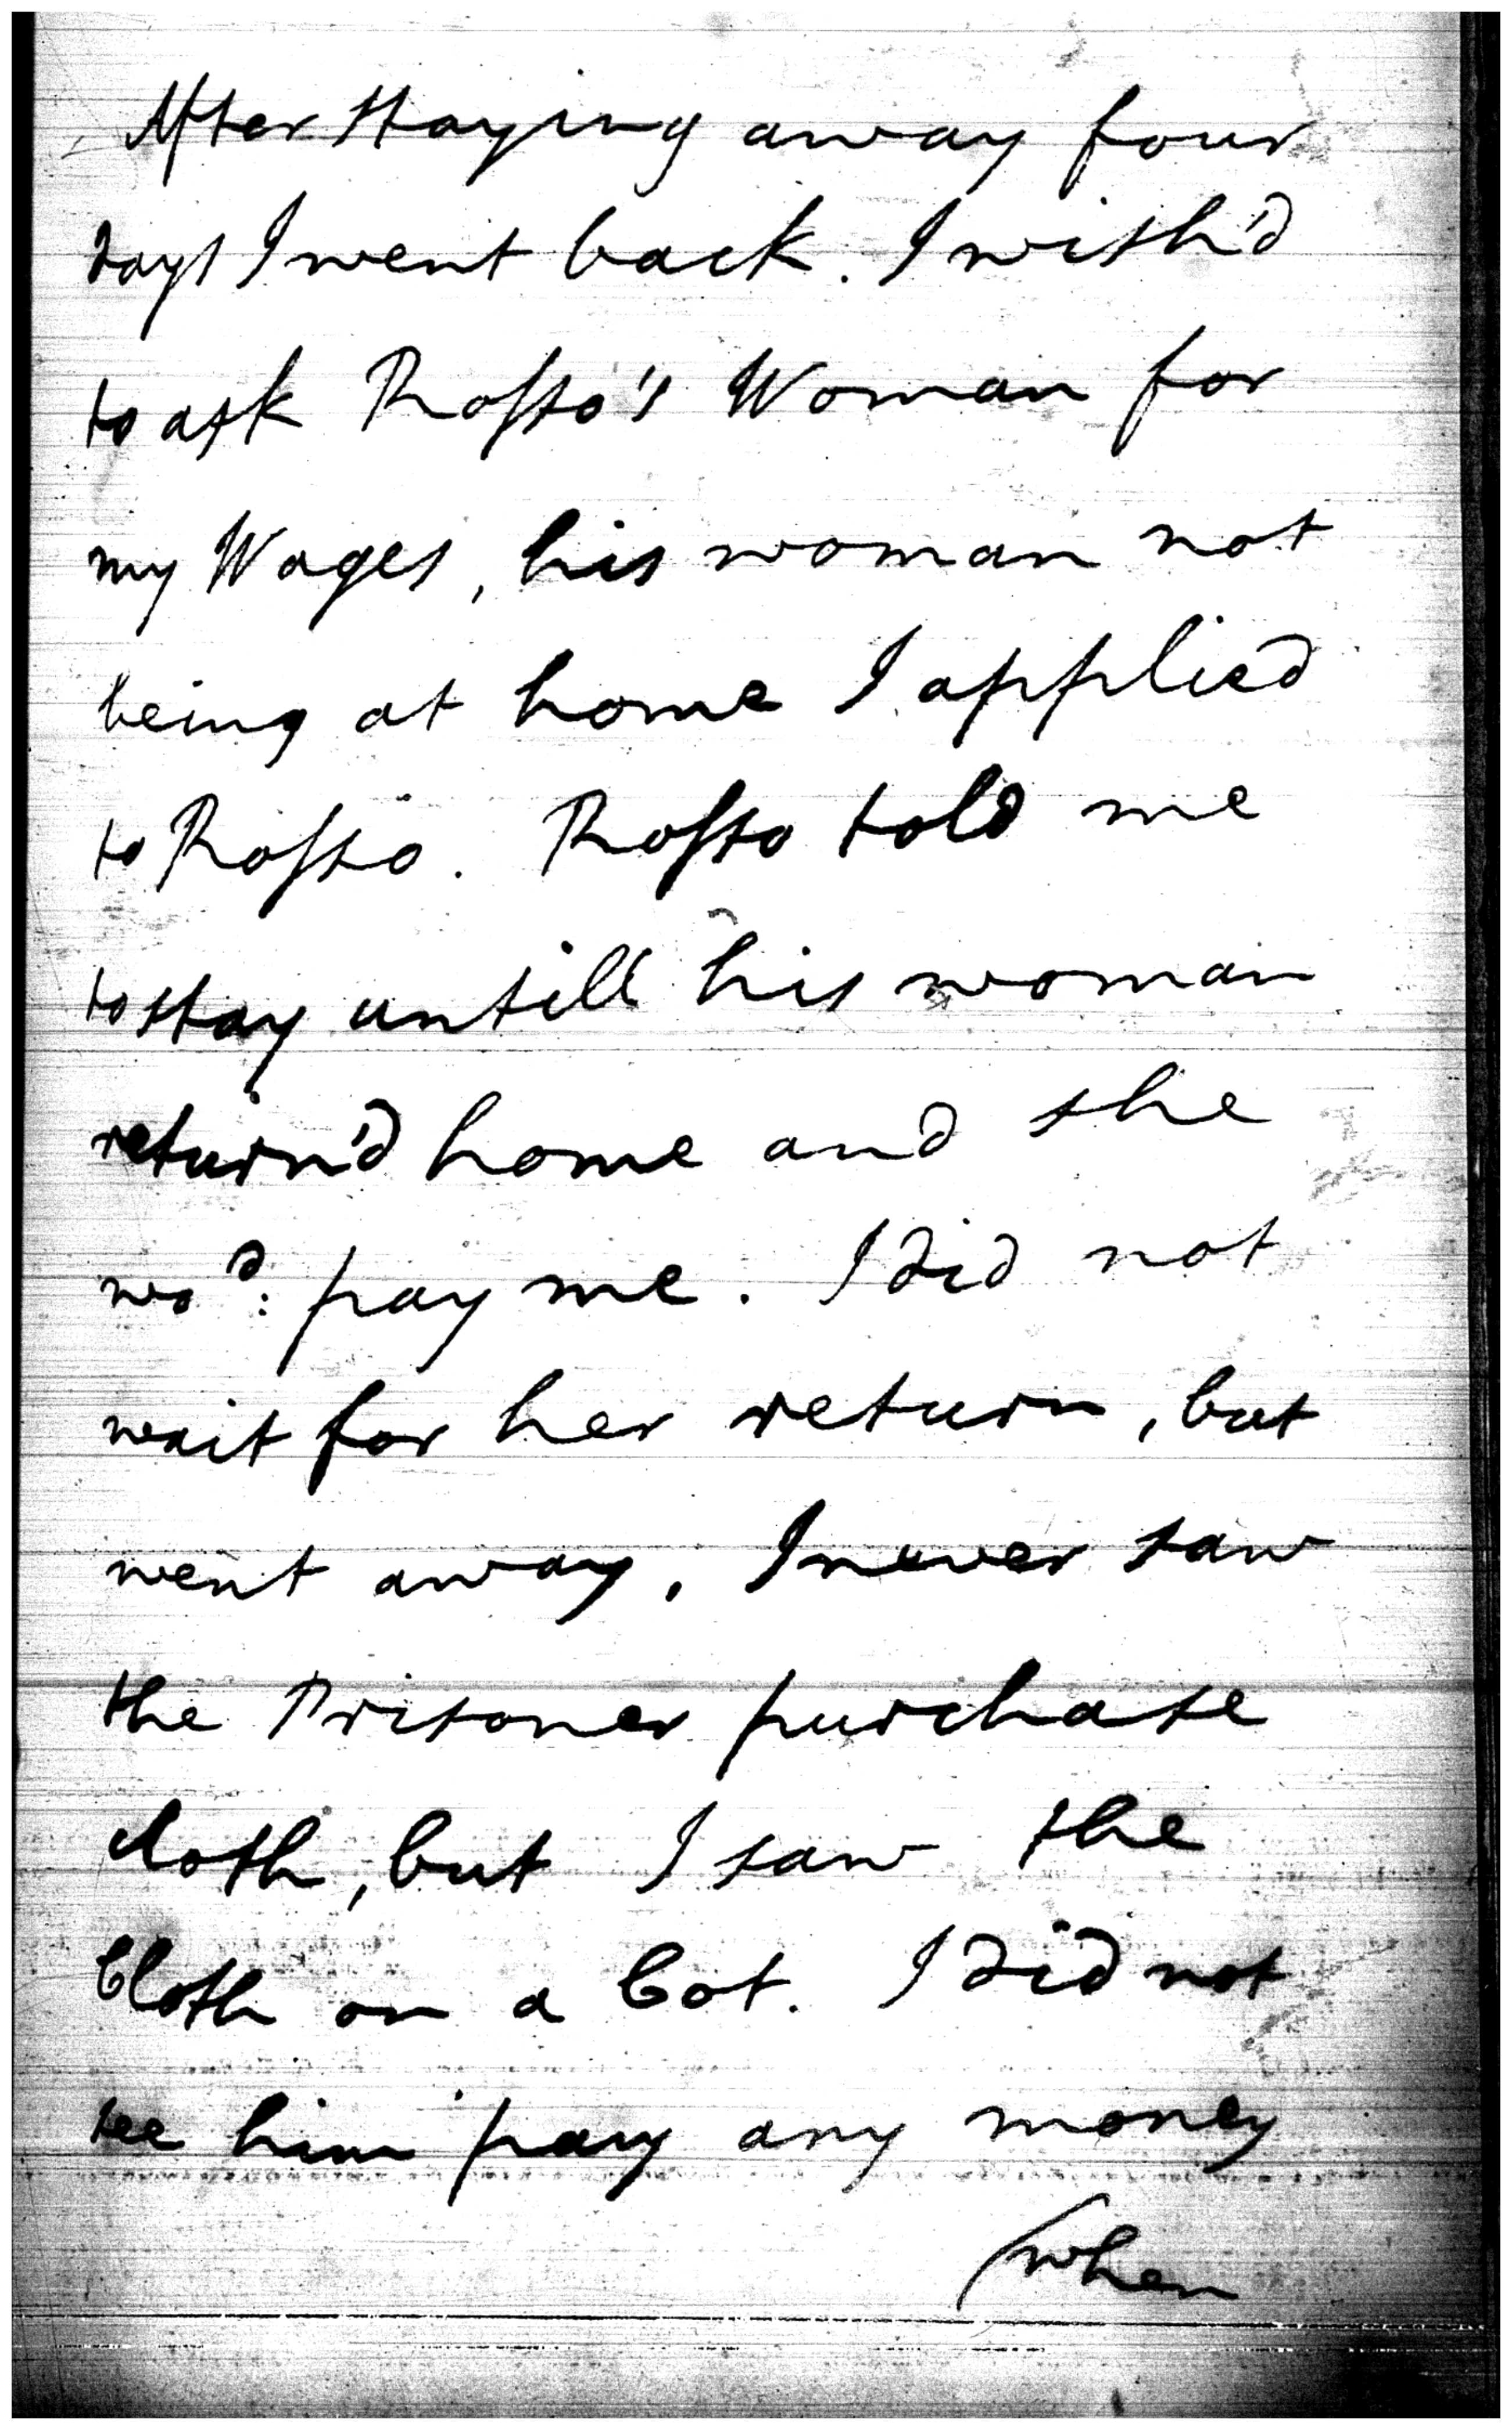 After staying away four
days I went back. I wish'd
to ask Rosso's Woman for
my Wages, his woman not
being at home I applied
to Rosso. Rosso told me
to stay untill his woman
return'd home and she
wod: pay me. I did not
wait for her return, but
went away. I never saw
the Prisoner purchase
cloth, but I saw the
Cloth on a Cot. I did not
see him pay any money
when